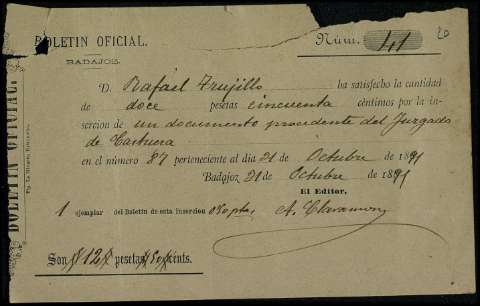 BOLETIN OFICIAL.
BADAJOZ.
Núm. 41
20
D. Rafael Trujillo ha satisfecho la cantidad
de doce pesetas cincuenta céntimos por la in-
sercion de un documento procedente del Juzgado
de Castuera
en el número 87 perteneciente al dia 21 de Octubre de 1891
Badajoz 21 de Octubre de 1891
El Editor,
1 ejemplar del Boletin de esta insercion 0'50 ptas,
Son 12 pesetas 50 cénts.
BOLETIN OFICIAL.